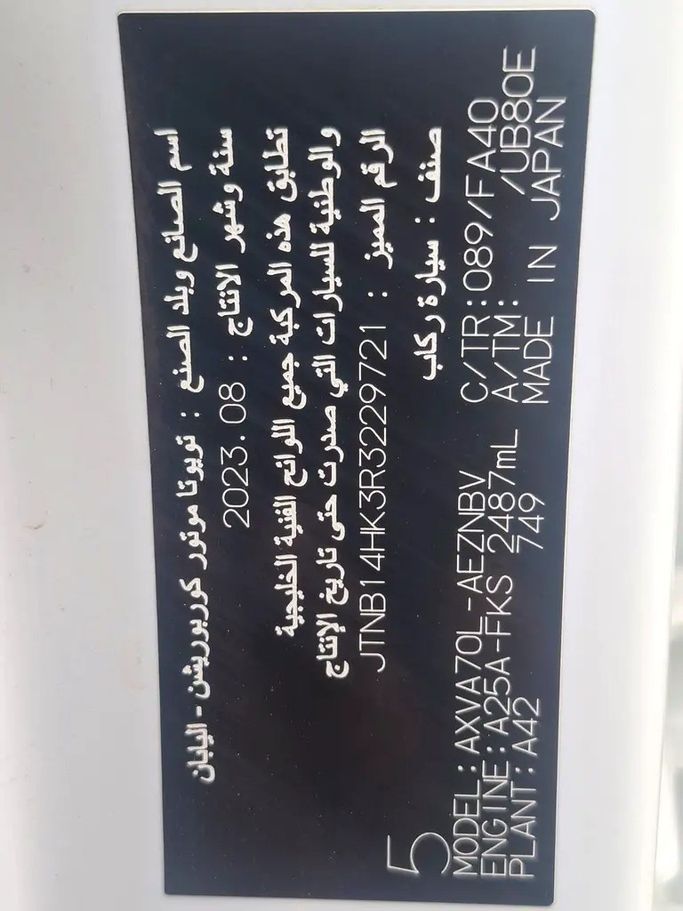 اسم الصانع وبلد الصنع : تويوتا موتور كوربوريشن - اليابان
سنة وشهر الانتاج : 2023.08
تطابق هذه المركبة جميع اللوائح الفنية الخليجية
والوطنية للسيارات التي صدرت حتى تاريخ الإنتاج
الرقم المميز : JTNB14HK3R3229721
صنف : سيارة ركاب
5
MODEL : AXVA70L-AEZNBV C/TR : 089/FA40
ENGINE : A25A-FKS 2487mL A/TM : /UB80E
PLANT : A42 749 MADE IN JAPAN